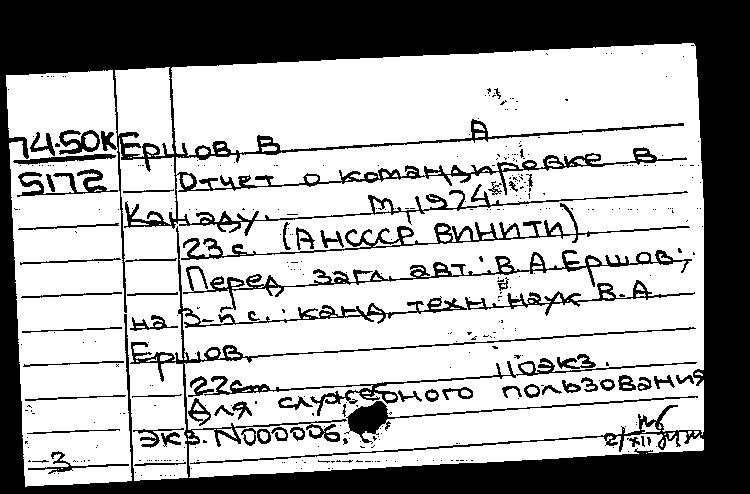 74-50К Ершов, В А
5172 Отчет о командировке в
Канаду. М., 1974.
23 с. (АНСССР. ВИНИТИ).
Перед загл. авт.: В.А.Ершов;
на 3-й с.: канд. техн. наук В.А.
Ершов.
22см. 110экз.
Для служебного пользования
экз. N000006.
3